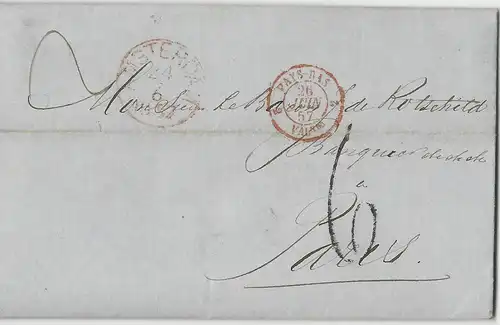 AMSTERDAM
6
PAYS-BAS
26
JUIN
57
Monsieur le Baron J. de Rotschild
Banquier
a
Paris
6